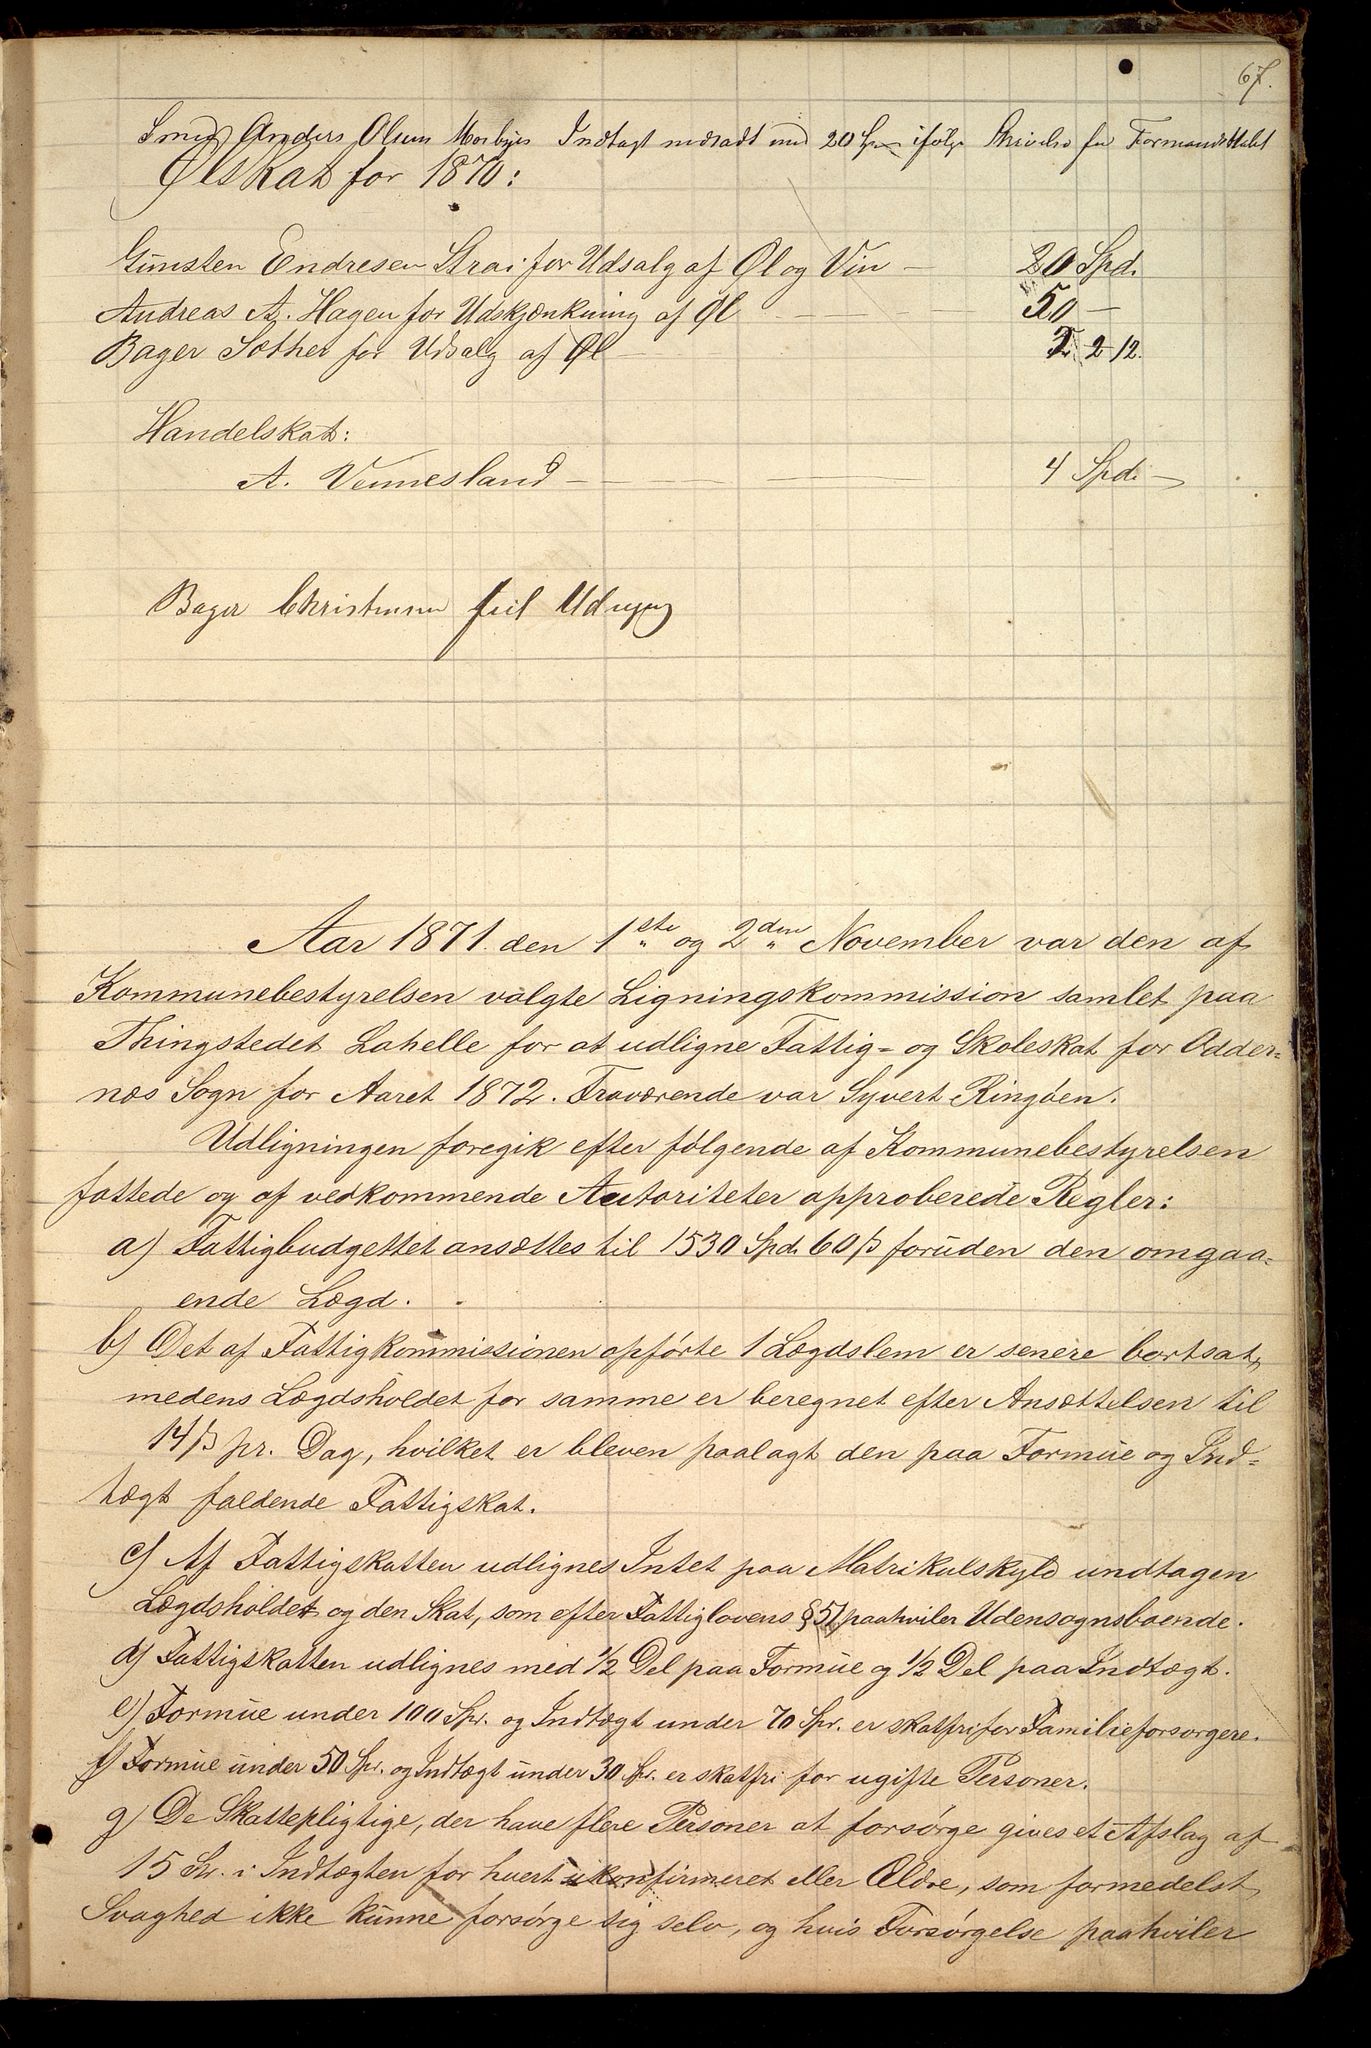 67.
Smed Anders Olsen Mosbyes Indtægt nedsadt med 20 Spr ifølge Skrivelse fra Formandskabet
Ølskat for 1870:
Gunsten Endresen Strai for Udsalg af Øl og Vin — 20 Spd.
Andreas A. Hagen for Udskjænkning af Øl — — — 50 —
Bager Sæther for Udsalg af Øl — 2 2 12.
Handelskat:
A. Vennesland — — — — 4 Spd. —
Bager Christensen feil
Aar 1871. den 1ste og 2den November var den af
Kommunebestyrelsen valgte Ligningskommission samlet paa
Thingstedet Lahelle for at udligne Fattig- og Skoleskat for Odder-
næs Sogn for Aaret 1872. Fraværende var Syvert Ringøen.
Udligningen foregik efter følgende af Kommunebestyrelsen
fattede og af vedkommende Autoriteter approberede Regler:
a) Fattigbudgettet ansættes til 1530 Spd. 60 β foruden den omgaa-
ende Lægd.
b) Det af Fattigkommissionen opførte 1 Lægdslem er senere bortsat,
medens Lægdsholdet for samme er beregnet efter Ansættelsen til
14 β pr. Dag, hvilket er bleven paalagt den paa Formue og Ind-
tægt faldende Fattigskat.
c) Af Fattigskatten udlignes Intet paa Matrikulskyld undtagen
Lægdsholdet og den Skat, som efter Fattiglovens § 51 paahviler Udensognsboende.
d) Fattigskatten udlignes med 1/2 Del paa Formue og 1/2 Del paa Indtægt.
e) Formue under 100 Spr. og Indtægt under 70 Spr. er skatfri for Familieforsørgere.
f) Formue under 50 Spr. og Indtægt under 30 Spr. er skatfri for ugifte Personer.
g) De Skattepligtige, der have flere Personer at forsørge gives et Afslag af
15 Spr. i Indtægten for hvert ukonfirmeret eller Ældre, som formedelst
Svaghed ikke kunne forsørge sig selv, og hvis Forsørgelse paahviler